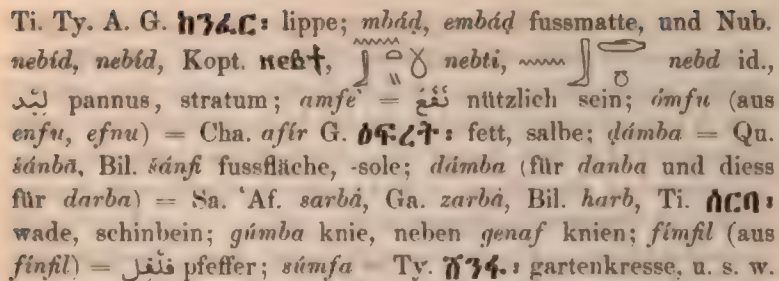 Ti. Ty. A. G. ከንፈር፡ lippe; mbáḍ, embáḍ fussmatte, und Nub.
nebíd, nebíd, Kopt. ⲛⲉⲃϯ, nebti, nebd id.,
لِبْد pannus, stratum; amfe‛ = نَفَعَ nützlich sein; ómfu (aus
enfu, efnu) = Cha. afír G. ዕፍረት፡ fett, salbe; ḍámba = Qu.
šánbā, Bil. šánfi fussfläche, -sole; dámba (für danba und diess
für darba) = Sa. ‛Af. sarbá, Ga. zarbá, Bil. harb, Ti. ሰርበ፡
wade, schinbein; gúmba knie, neben genaf knien; fímfil (aus
fínfil) = فُلْفُل pfeffer; súmfa Ty. ሽንፋ፡ gartenkresse, u. s. w.